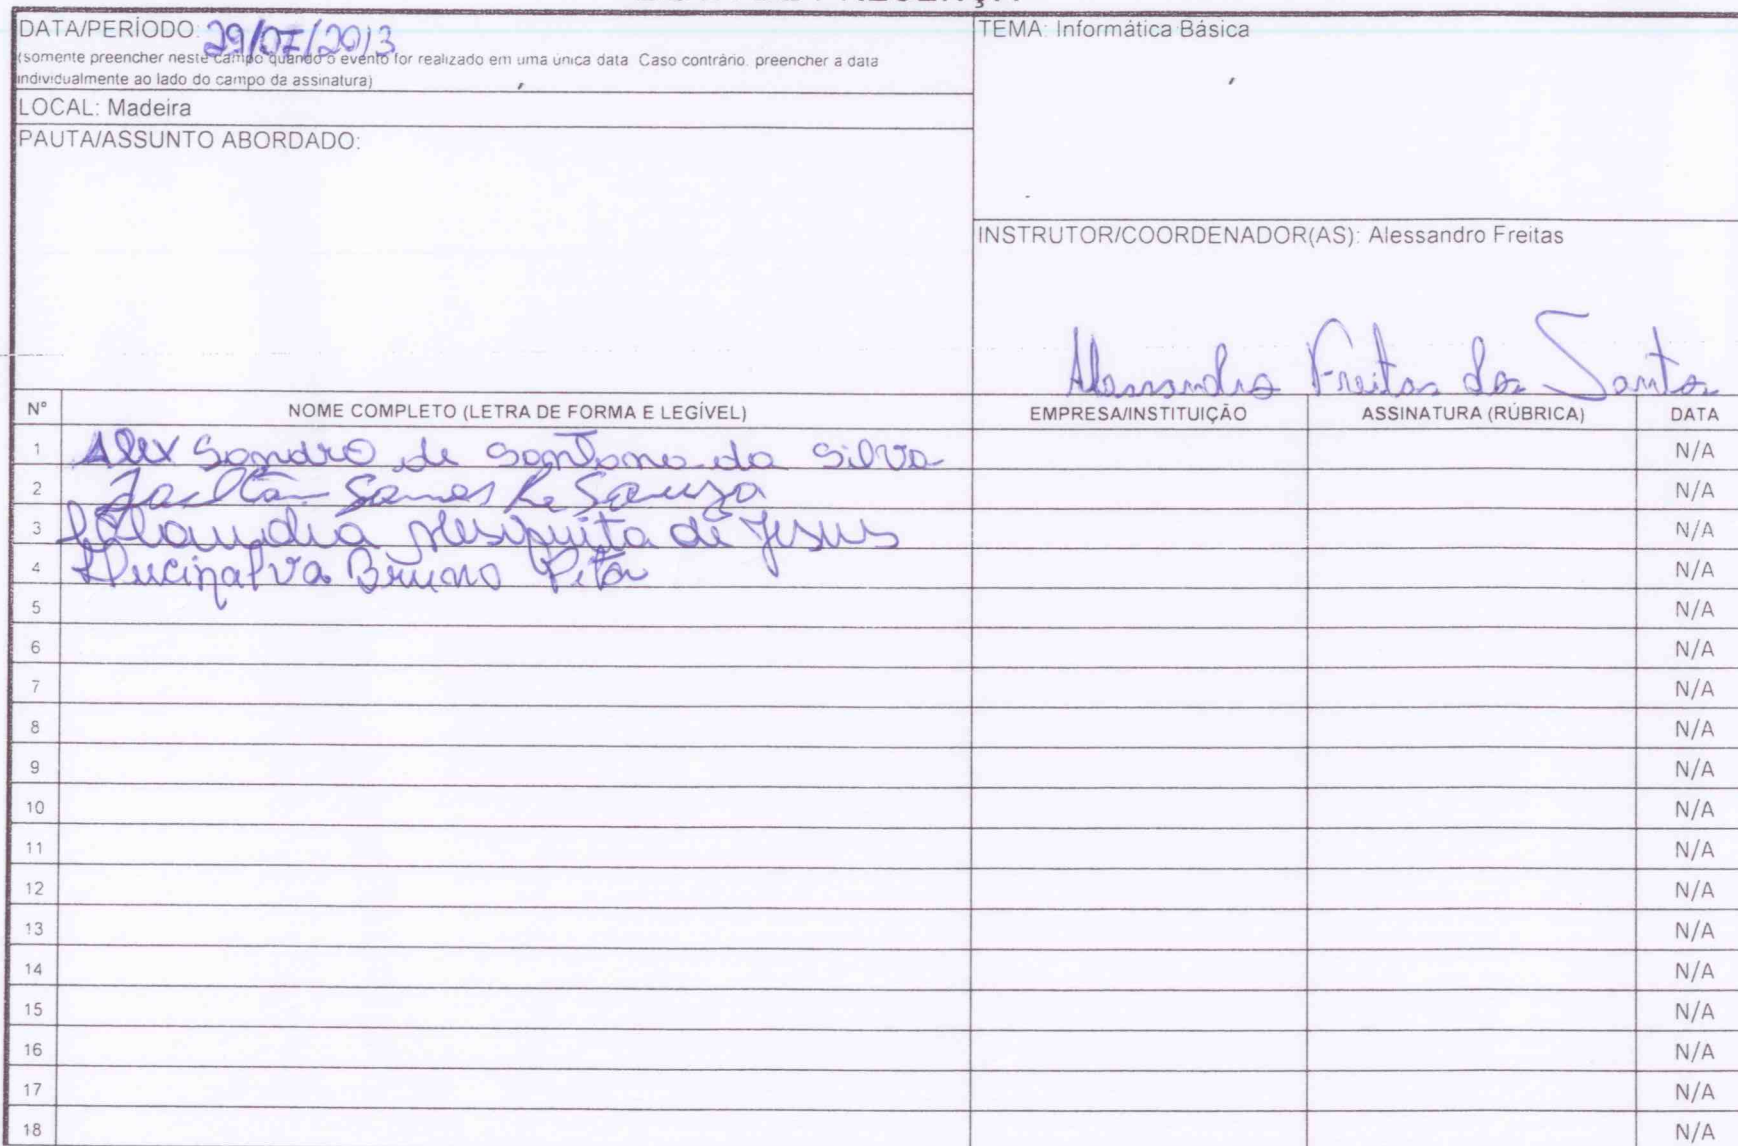 DATA/PERÍODO: 29/07/2013
(somente preencher neste campo quando o evento for realizado em uma única data. Caso contrário, preencher a data
individualmente ao lado do campo da assinatura)
TEMA: Informática Básica
LOCAL: Madeira
PAUTA/ASSUNTO ABORDADO:
INSTRUTOR/COORDENADOR(AS): Alessandro Freitas
Alessandro Freitas dos Santos
N° NOME COMPLETO (LETRA DE FORMA E LEGÍVEL) EMPRESA/INSTITUIÇÃO ASSINATURA (RÚBRICA) DATA
1 Alex Sandro de Santana da Silva N/A
2 de Souza N/A
3 Mesquita de Jesus N/A
4 Lucinalva Bruno Pita N/A
5 N/A
6 N/A
7 N/A
8 N/A
9 N/A
10 N/A
11 N/A
12 N/A
13 N/A
14 N/A
15 N/A
16 N/A
17 N/A
18 N/A